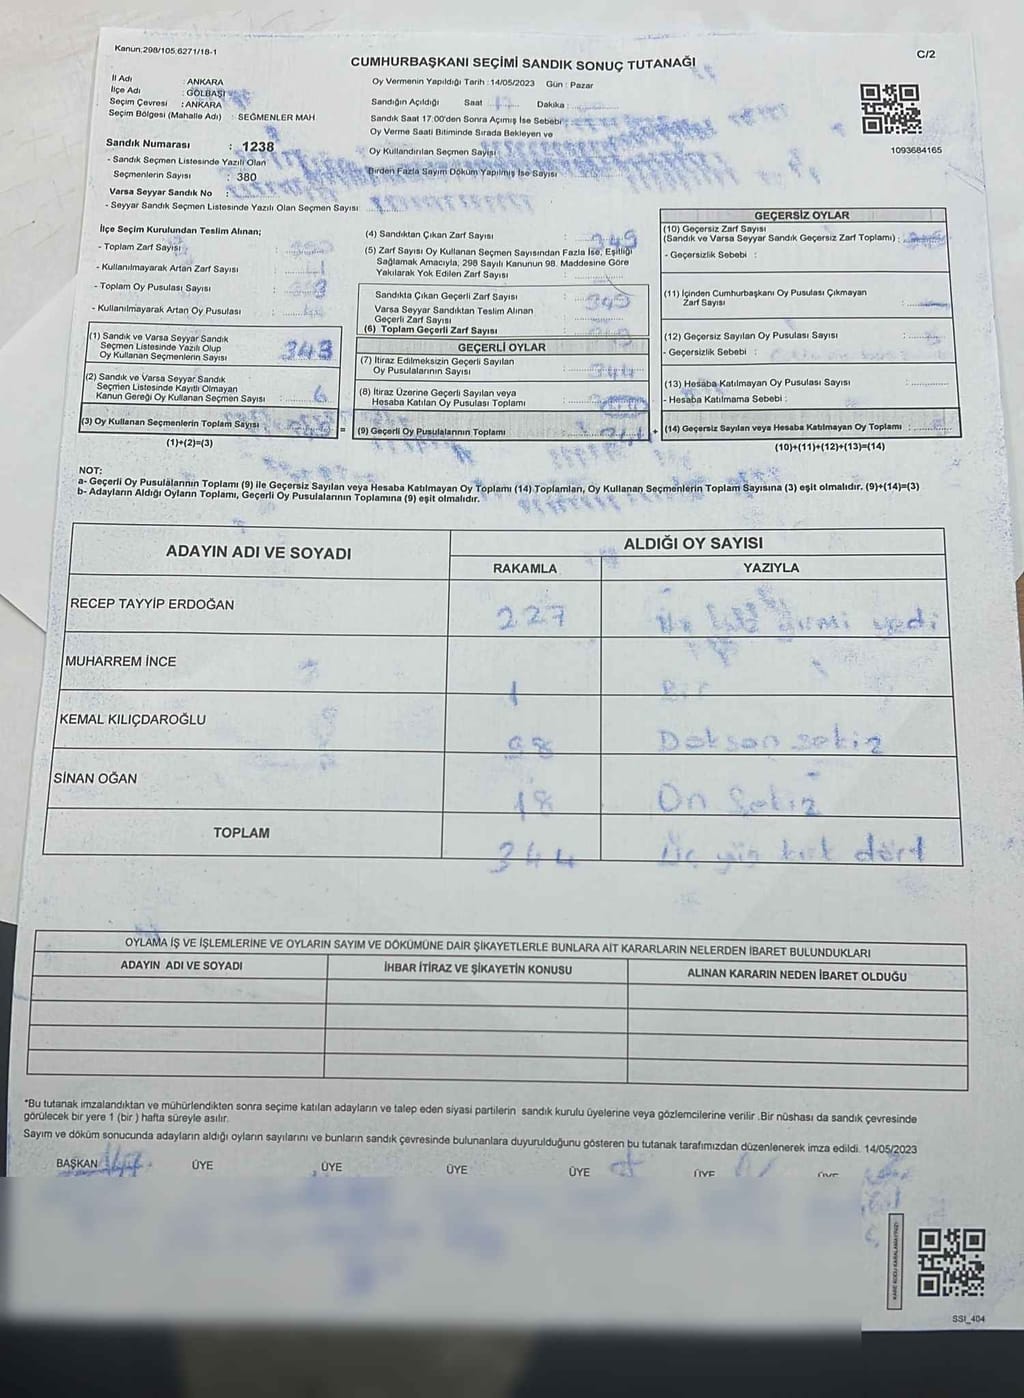 Kanun:298/105,6271/18-1
C/2
CUMHURBAŞKANI SEÇİMİ SANDIK SONUÇ TUTANAĞI
İl Adı : ANKARA
İlçe Adı : GÖLBAŞI
Seçim Çevresi : ANKARA
Seçim Bölgesi (Mahalle Adı) : SEĞMENLER MAH.
Sandık Numarası : 1238
- Sandık Seçmen Listesinde Yazılı Olan
Seçmenlerin Sayısı : 380
Varsa Seyyar Sandık No :
- Seyyar Sandık Seçmen Listesinde Yazılı Olan Seçmen Sayısı
Oy Vermenin Yapıldığı Tarih : 14/05/2023 Gün : Pazar
Sandığın Açıldığı Saat Dakika :
Sandık Saat 17:00'den Sonra Açımış İse Sebebi :
Oy Verme Saati Bitiminde Sırada Bekleyen ve
Oy Kullandırılan Seçmen Sayısı
Birden Fazla Sayım Döküm Yapılmış İse Sayısı
1093684165
İlçe Seçim Kurulundan Teslim Alınan;
- Toplam Zarf Sayısı :
- Kullanılmayarak Artan Zarf Sayısı
- Toplam Oy Pusulası Sayısı
- Kullanılmayarak Artan Oy Pusulası
(1) Sandık ve Varsa Seyyar Sandık
Seçmen Listesinde Yazılı Olup
Oy Kullanan Seçmenlerin Sayısı 343
(2) Sandık ve Varsa Seyyar Sandık
Seçmen Listesinde Kayıtlı Olmayan
Kanun Gereği Oy Kullanan Seçmen Sayısı : 6
(3) Oy Kullanan Seçmenlerin Toplam Sayısı
(1)+(2)=(3)
(4) Sandıktan Çıkan Zarf Sayısı : 349
(5) Zarf Sayısı Oy Kullanan Seçmen Sayısından Fazla İse, Eşitliği
Sağlamak Amacıyla, 298 Sayılı Kanunun 98. Maddesine Göre
Yakılarak Yok Edilen Zarf Sayısı :
Sandıkta Çıkan Geçerli Zarf Sayısı : 349
Varsa Seyyar Sandıktan Teslim Alınan
Geçerli Zarf Sayısı :
(6) Toplam Geçerli Zarf Sayısı :
GEÇERLİ OYLAR
(7) İtiraz Edilmeksizin Geçerli Sayılan
Oy Pusulalarının Sayısı : 344
(8) İtiraz Üzerine Geçerli Sayılan veya
Hesaba Katılan Oy Pusulası Toplamı
= (9) Geçerli Oy Pusulalarının Toplamı : 344 +
GEÇERSİZ OYLAR
(10) Geçersiz Zarf Sayısı
(Sandık ve Varsa Seyyar Sandık Geçersiz Zarf Toplamı) :
- Geçersizlik Sebebi :
(11) İçinden Cumhurbaşkanı Oy Pusulası Çıkmayan
Zarf Sayısı :
(12) Geçersiz Sayılan Oy Pusulası Sayısı :
- Geçersizlik Sebebi :
(13) Hesaba Katılmayan Oy Pusulası Sayısı :
- Hesaba Katılmama Sebebi :
(14) Geçersiz Sayılan veya Hesaba Katılmayan Oy Toplamı :
(10)+(11)+(12)+(13)=(14)
NOT:
a- Geçerli Oy Pusulalarının Toplamı (9) ile Geçersiz Sayılan veya Hesaba Katılmayan Oy Toplamı (14) Toplamları, Oy Kullanan Seçmenlerin Toplam Sayısına (3) eşit olmalıdır. (9)+(14)=(3)
b- Adayların Aldığı Oyların Toplamı, Geçerli Oy Pusulalarının Toplamına (9) eşit olmalıdır.
ADAYIN ADI VE SOYADI
ALDIĞI OY SAYISI
RAKAMLA YAZIYLA
RECEP TAYYİP ERDOĞAN 227 yirmi yedi
MUHARREM İNCE 1 Bir
KEMAL KILIÇDAROĞLU 98 Doksan sekiz
SİNAN OĞAN 18 On Sekiz
TOPLAM 344 Üç yüz kırk dört
OYLAMA İŞ VE İŞLEMLERİNE VE OYLARIN SAYIM VE DÖKÜMÜNE DAİR ŞİKAYETLERLE BUNLARA AİT KARARLARIN NELERDEN İBARET BULUNDUKLARI
ADAYIN ADI VE SOYADI İHBAR İTİRAZ VE ŞİKAYETİN KONUSU ALINAN KARARIN NEDEN İBARET OLDUĞU
*Bu tutanak imzalandıktan ve mühürlendikten sonra seçime katılan adayların ve talep eden siyasi partilerin sandık kurulu üyelerine veya gözlemcilerine verilir .Bir nüshası da sandık çevresinde
görülecek bir yere 1 (bir ) hafta süreyle asılır.
Sayım ve döküm sonucunda adayların aldığı oyların sayılarını ve bunların sandık çevresinde bulunanlara duyurulduğunu gösteren bu tutanak tarafımızdan düzenlenerek imza edildi. 14/05/2023
BAŞKAN ÜYE ÜYE ÜYE ÜYE ÜYE ÜYE
KARE KODU KARALAMAYINIZ!
SSI_404